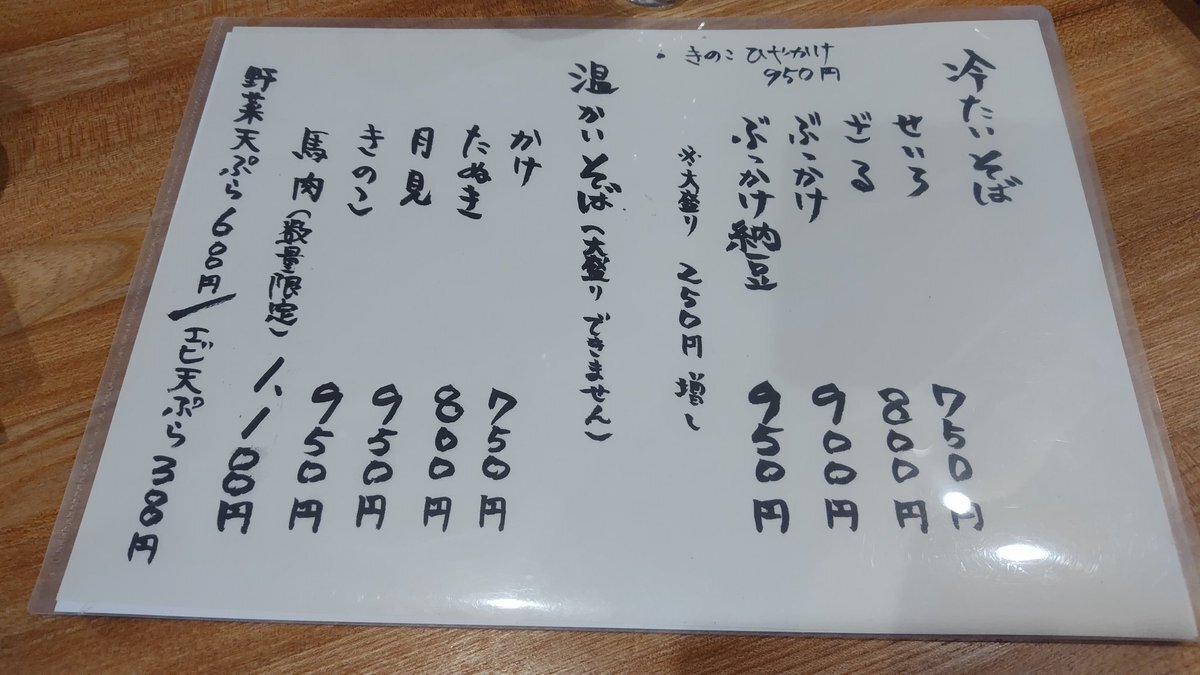 冷たいそば
せいろ 750円
ざる 800円
ぶっかけ 900円
ぶっかけ納豆 950円
・きのこ ひやかけ
950円
※大盛り 250円増し
温かいそば(大盛りできません)
かけ 750円
たぬき 800円
月見 950円
きのこ 950円
馬肉(数量限定) 1、100円
野菜天ぷら600円/エビ天ぷら300円